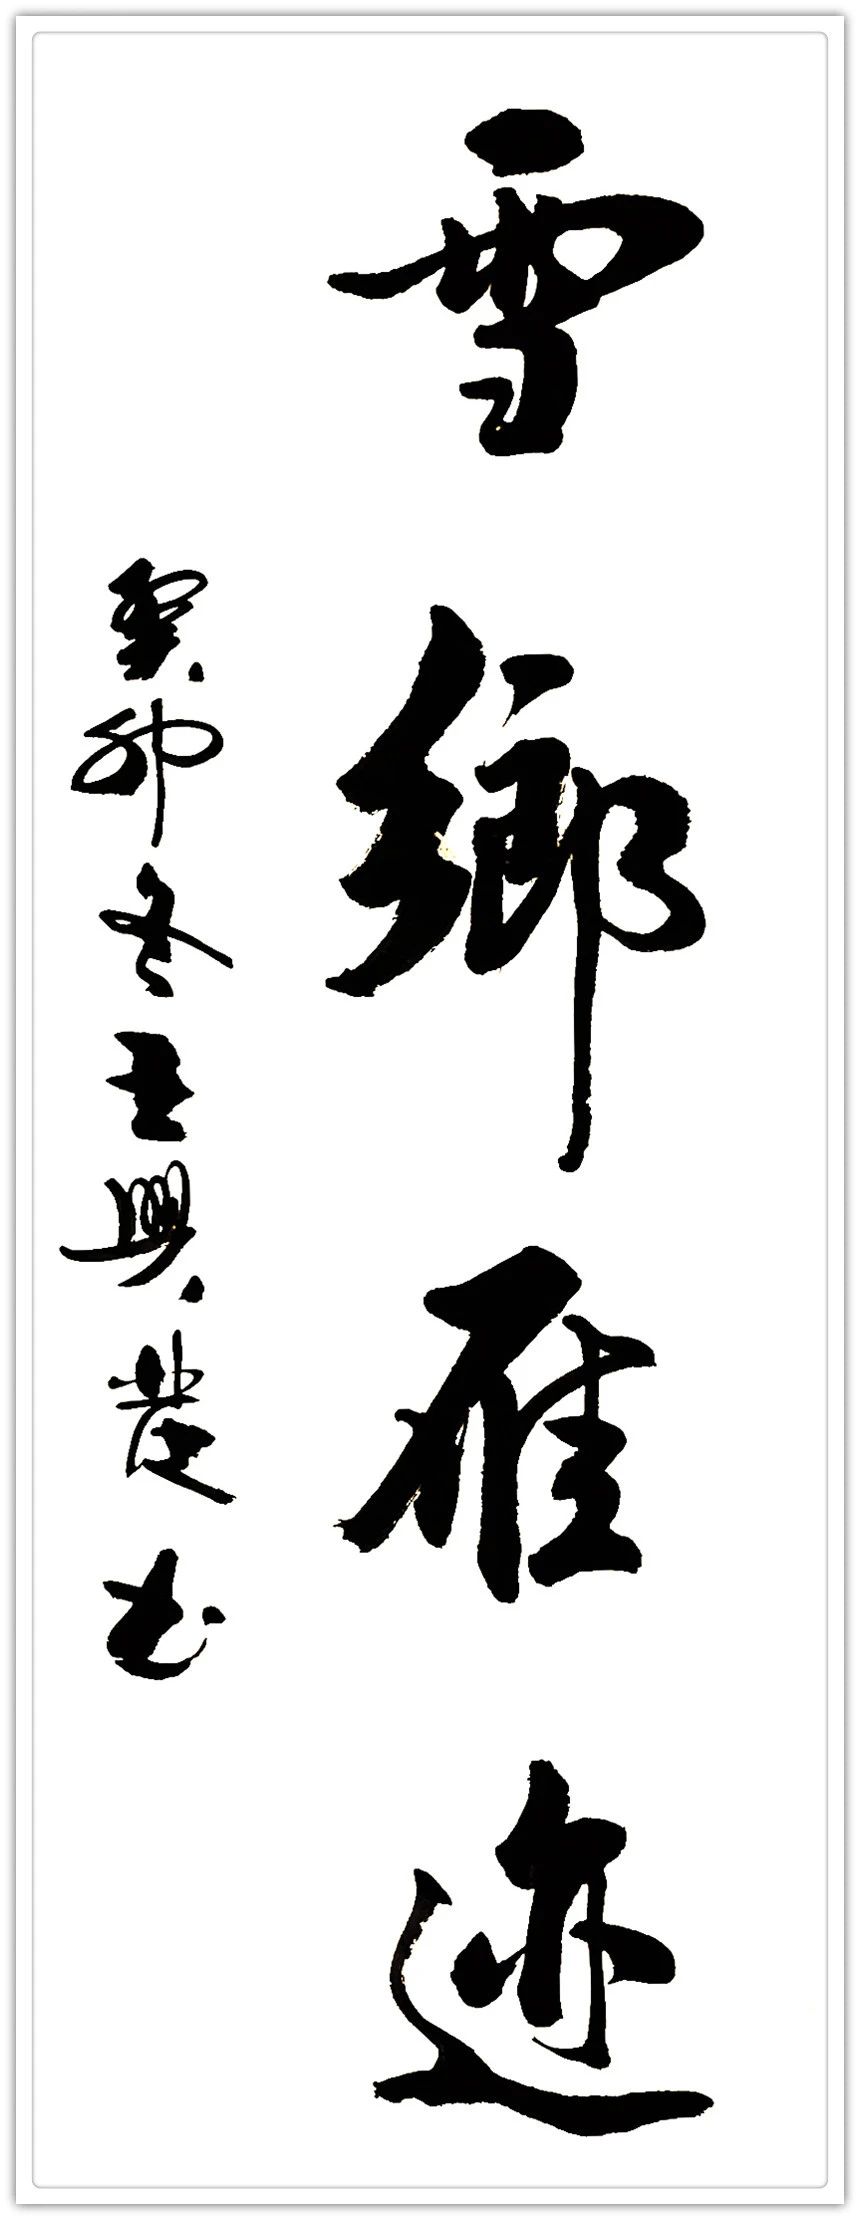 雪鄉雁迹
癸卯冬王興楚书